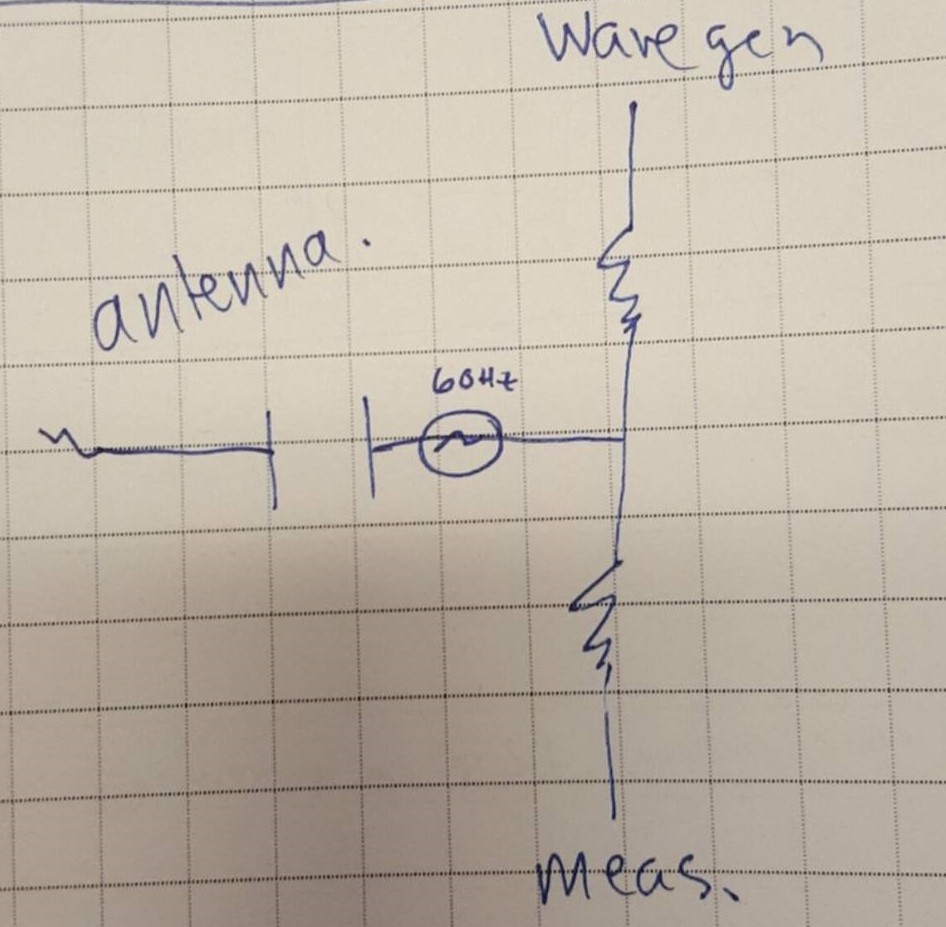 Wave gen
antenna.
60Hz
Meas.